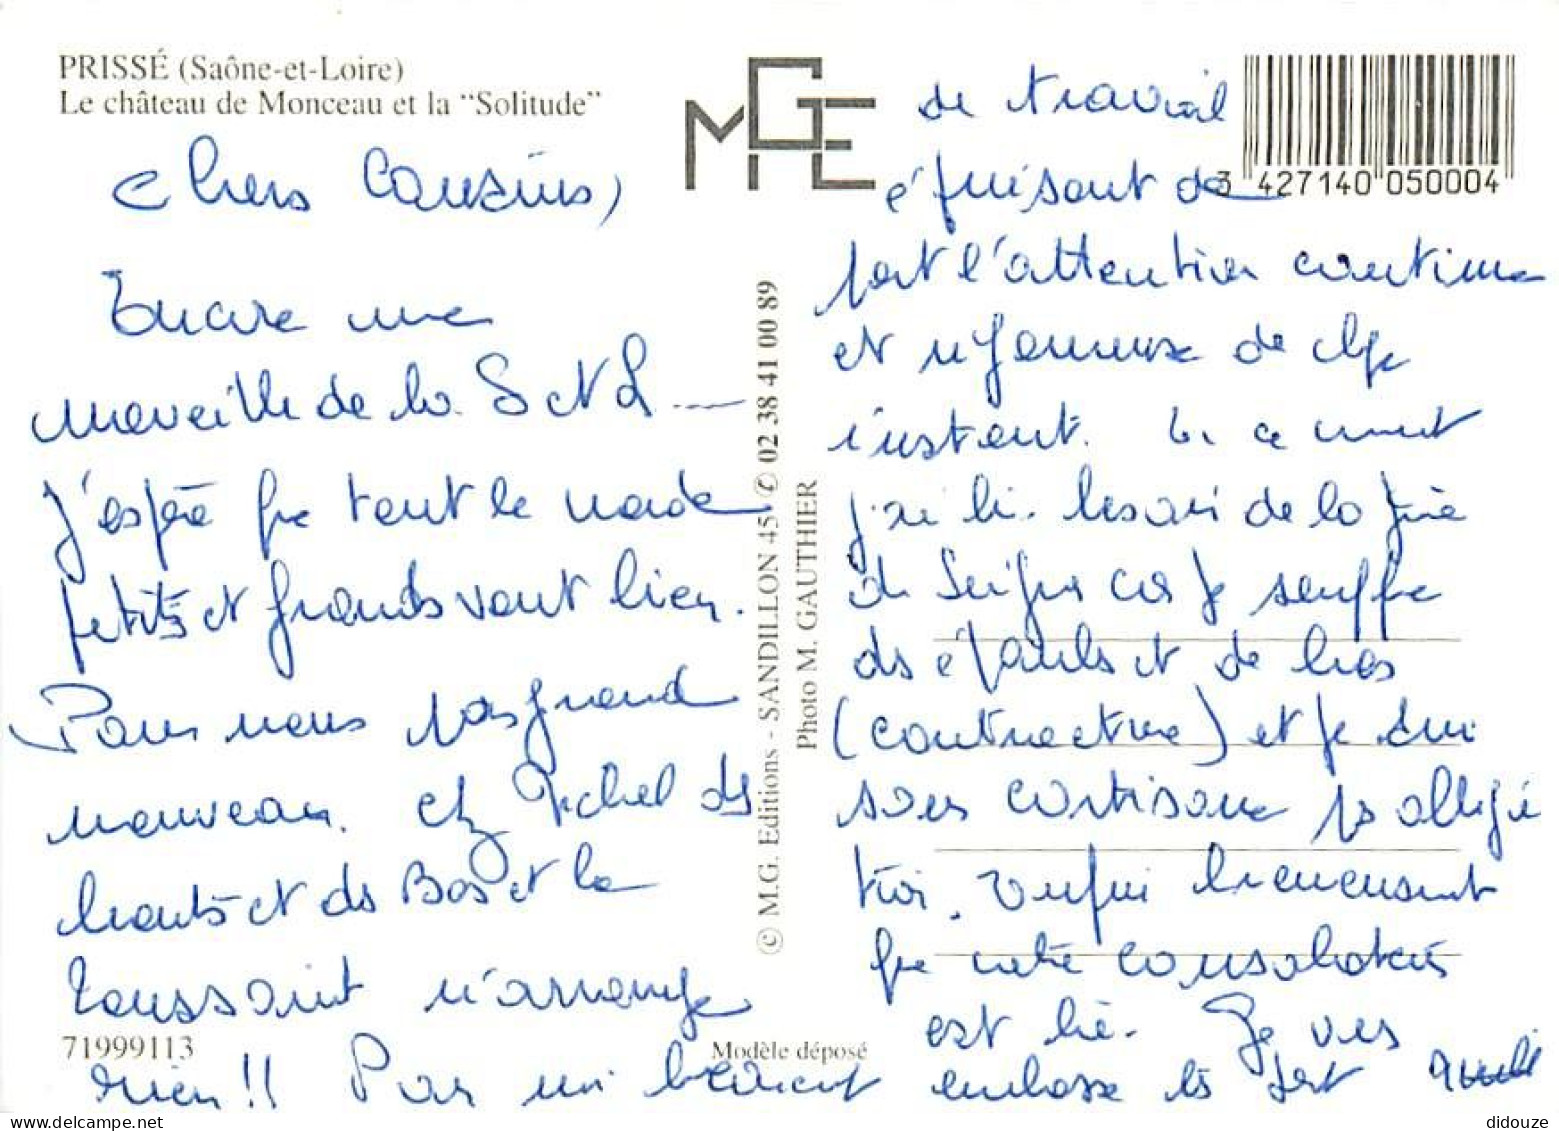 PRISSÉ (Saône-et-Loire)
Le château de Monceau et la "Solitude"
MGE
3 427140 050004
Chers Cousins,
Encore une
merveille de la S et L ....
J'espère que tout le monde
petits et grands vont bien.
Pour nous pas grand
nouveau. chez Michel des
hauts et ds Bas et la
Toussaint n'arrange
rien !! Pas un
de travail
épuisant de
part l'attention continue
et rigoureuse de chaque
instant. ce moment
j'ai besoin de la
de car je souffre
ds épaules et de bras
(contracture) et je suis
sous cortisone
toi. Vu qui heureusement
que notre
est là. Je vous
embrasse ts fort
© M.G. Editions - SANDILLON 45 ✆ 02 38 41 00 89
Photo M. GAUTHIER
71999113
Modèle déposé
didouze